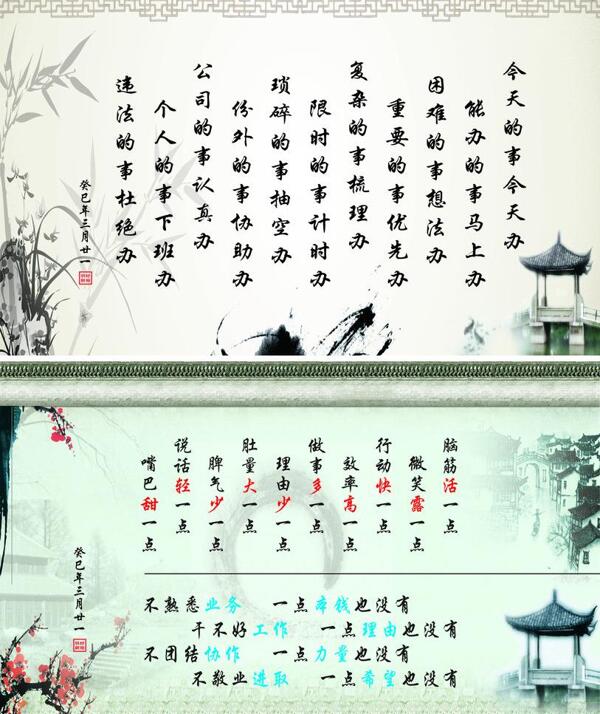 今天的事今天办
能办的事马上办
困难的事想法办
重要的事优先办
复杂的事梳理办
限时的事计时办
琐碎的事抽空办
份外的事协助办
公司的事认真办
个人的事下班办
违法的事杜绝办
癸巳年三月廿一
脑筋活一点
微笑露一点
行动快一点
效率高一点
做事多一点
理由少一点
肚量大一点
脾气少一点
说话轻一点
嘴巴甜一点
癸巳年三月廿一
不熟悉业务 一点本钱也没有
干不好工作 一点理由也没有
不团结协作 一点力量也没有
不敬业进取 一点希望也没有